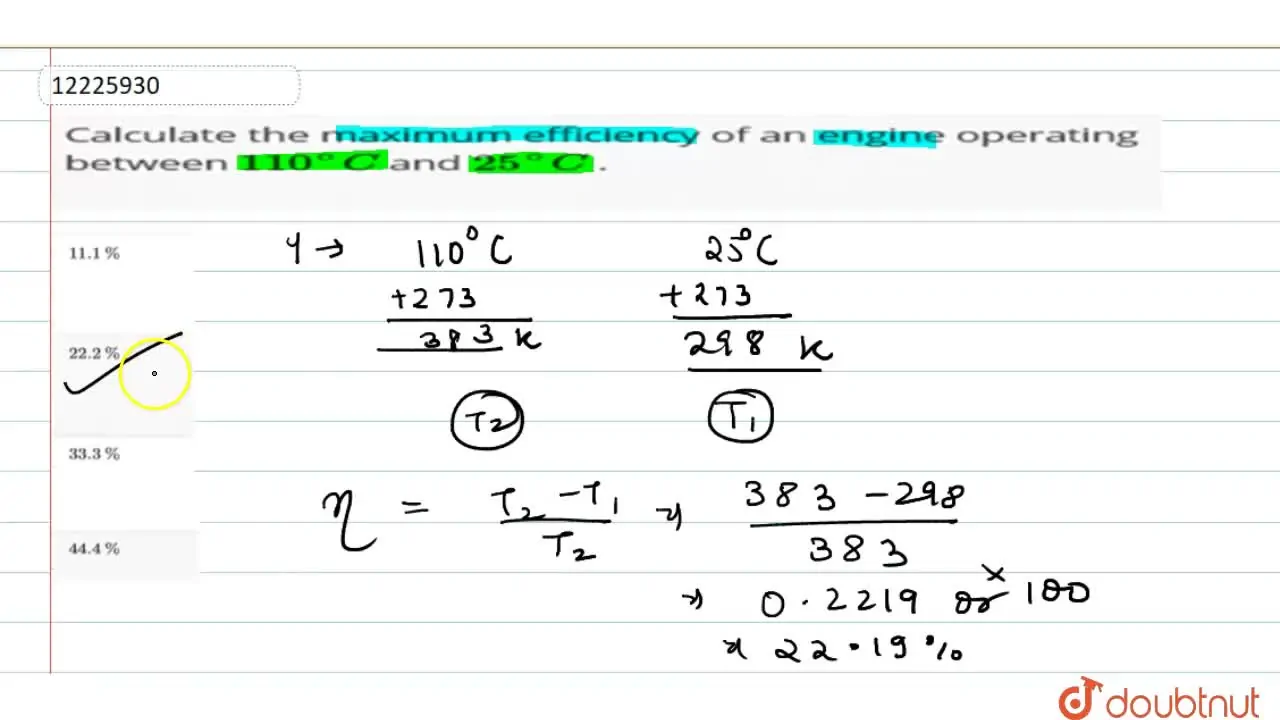 12225930
Calculate the maximum efficiency of an engine operating
between 110°C and 25°C.
11.1 %
22.2 %
33.3 %
44.4 %
110°C 25°C
+273 +273
383 K 298 K
T₂ T₁
η = T₂ - T₁ / T₂ ⇒ 383 - 298 / 383
⇒ 0.2219 × 100
⇒ 22.19 %
doubtnut